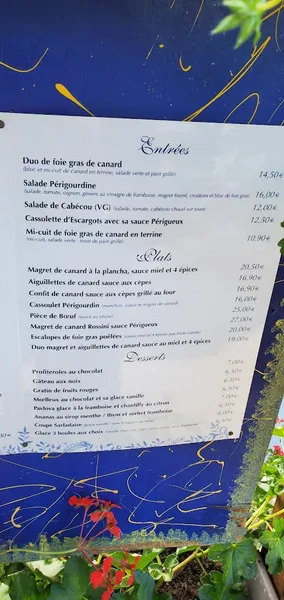 Entrées
Duo de foie gras de canard 14,50€
(bloc et mi-cuit de canard en terrine, salade verte et pain grillé)
Salade Périgourdine 16,00€
(salade, tomate, oignon, gésiers au vinaigre de framboise, magret fumé, croûtons et bloc de foie gras)
Salade de Cabécou (VG) 12,00€
(salade, tomate, cabécou chaud sur toast)
Cassolette d'Escargots avec sa sauce Périgueux 12,50€
Mi-cuit de foie gras de canard en terrine 10,90€
(mi-cuit, salade verte, toast de pain grillé)
Plats
Magret de canard à la plancha, sauce miel et 4 épices 20,50€
Aiguillettes de canard sauce aux cèpes 16,90€
Confit de canard sauce aux cèpes grillé au four 16,90€
Cassoulet Périgourdin 16,00€
Pièce de Bœuf 25,00€
Magret de canard Rossini sauce Périgueux 27,00€
Escalopes de foie gras poêlées 20,00€
Duo magret et aiguillettes de canard sauce au miel et 4 épices 19,00€
Desserts
Profiteroles au chocolat 7,00€
Gâteau aux noix
Gratin de fruits rouges
Moelleux au chocolat et sa glace vanille
Pavlova glace à la framboise et chantilly au citron
Ananas au sirop menthe / thym et sorbet framboise
Coupe Sarladaise
Glace 3 boules aux choix